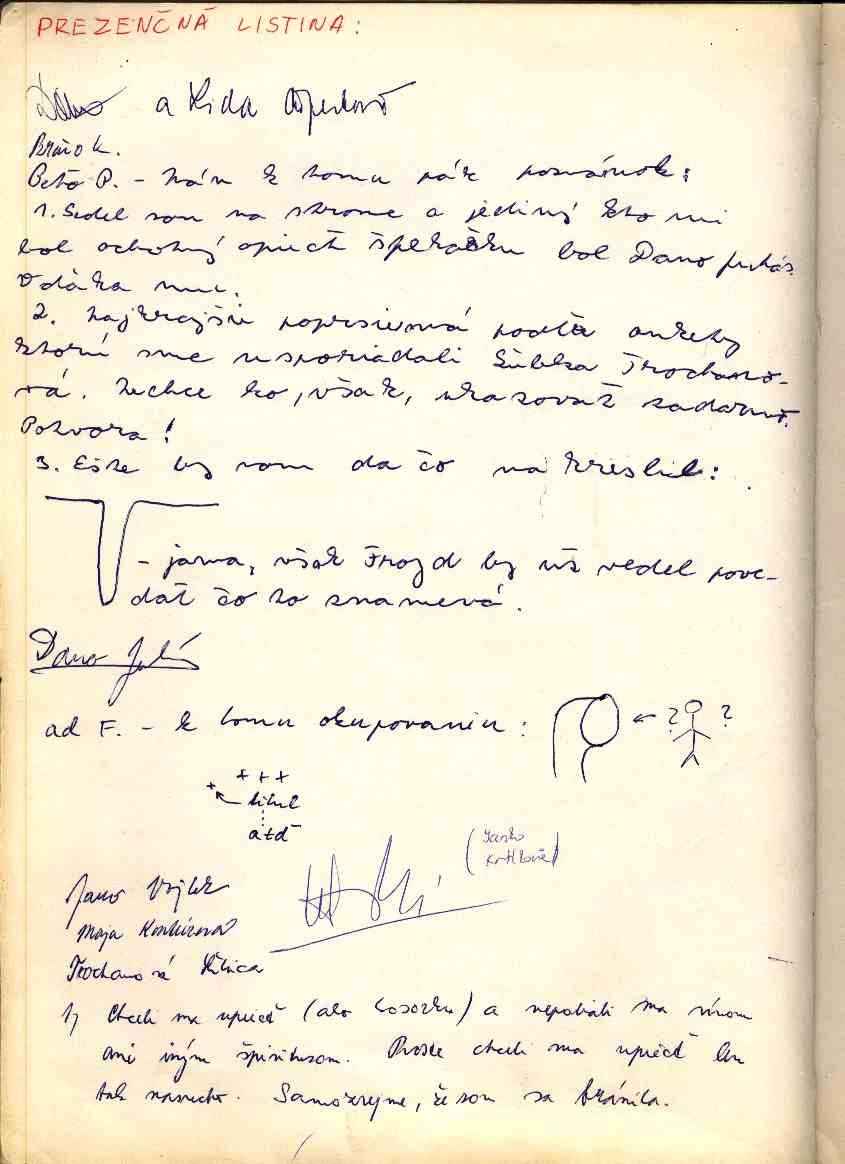 PREZENČNÁ LISTINA:
a Lida
Braňo K.
Beťo P. - Mám k tomu pár poznámok:
1. Sedel som na strome a jediný kto mi
bol ochotný opiecť špekačku bol Dano Juhás.
Vďaka mu.
2. Najkrajšie poprsie má podľa ankety
ktorú sme usporiadali Ľubka Trochano-
vá. Nechce ho, však, ukazovať zadarmo.
Potvora!
3. Ešte by som da čo nakreslil:
- jama, však Frojd by už vedel pove-
dať čo to znamená.
Dano
ad F. - k tomu okupovaniu:
? ?
+ + +
+ titul
atď
(Janko
)
Jano
Maja
Trochanová Ľubica
1, Chceli ma upiecť (ako lososa) a nepoliali ma vínom
ani iným špiritusom. Proste chceli ma upiecť len
tak nasucho. Samozrejme, že som sa bránila.